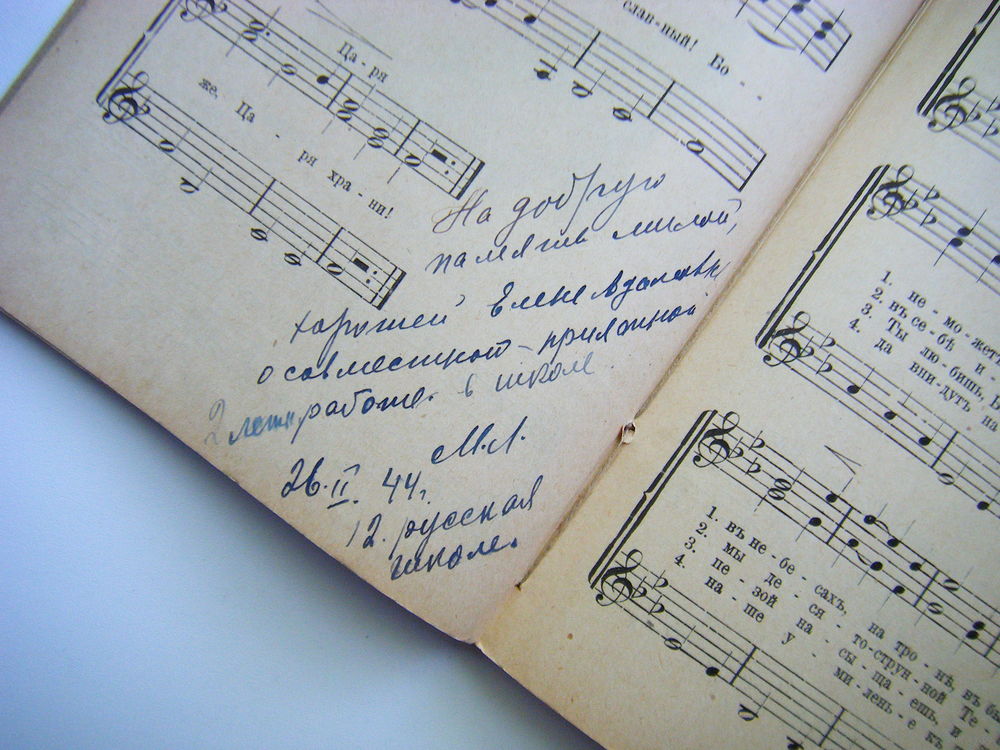 слав-ный! Бо - -
Ца-ря
же, Ца - ря хра-ни!
На добрую
память милой,
хорошей Елене
о совместной приятной
2 летн. работе в школе
М.Л.
26.II.44 г.
12. русская
школе.
1. не - мо - жет
2. въ се-бѣ и -
3. Ты лю-бишь,
4. да вни-дутъ на
1. въ не-бе - сахъ, на тро - нѣ, въ
2. мы де - ся - то-струн-ной Те -
3. пе - зой на - сы - ща - ешь, и
4. на - ше у - ми - лень-е къ